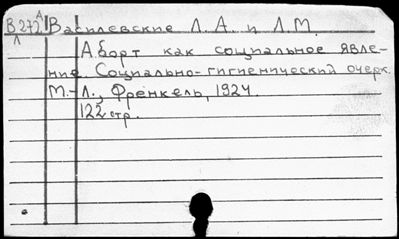 В 272 А Василевские Л.А. и Л.М.
Л
Аборт как социальное явле-
ние. Социально-гигиенический очерк.
М.-Л., Френкель, 1924.
122 стр.